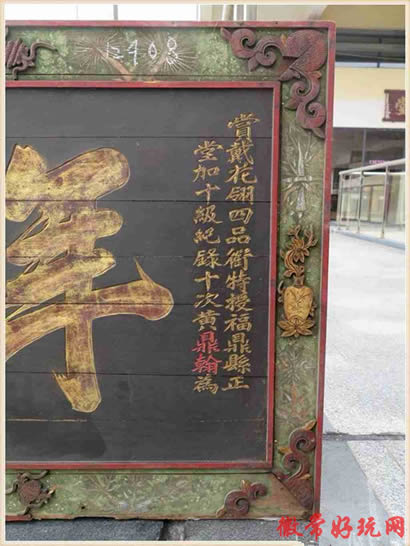 賞戴花翎四品銜特授福鼎縣正
堂加十級紀錄十次黃鼎翰為
年
徽常好玩网